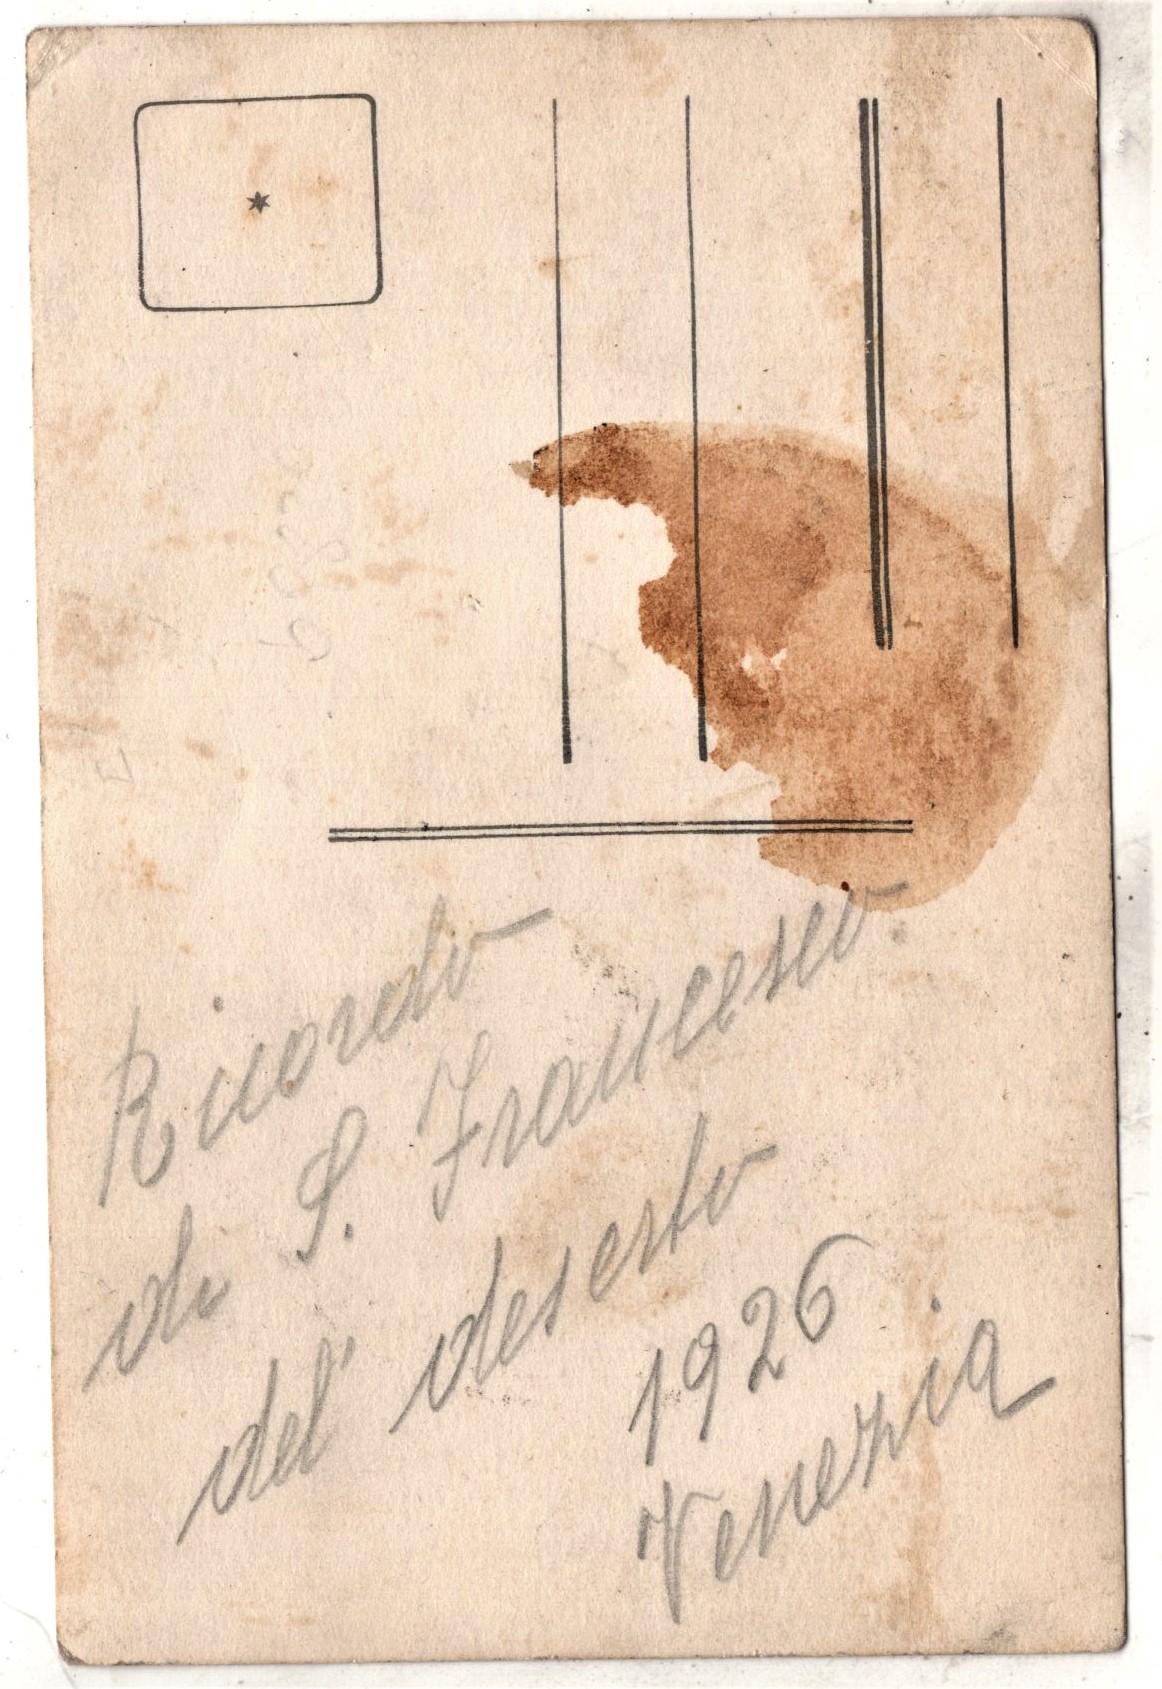 Ricordo
di S. Francesco
del' deserto
1926
Venezia